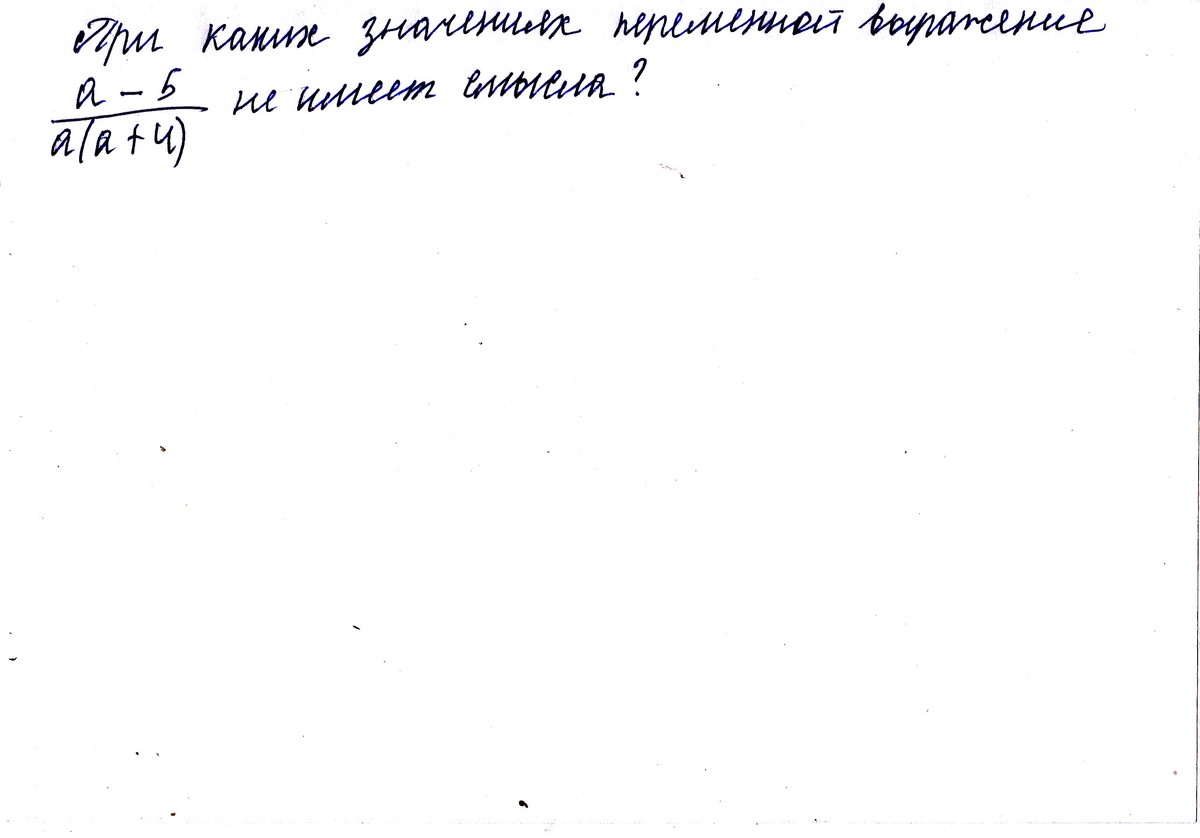 При каких значениях переменной выражение
a - 5
не имеет смысла?
a(a+4)